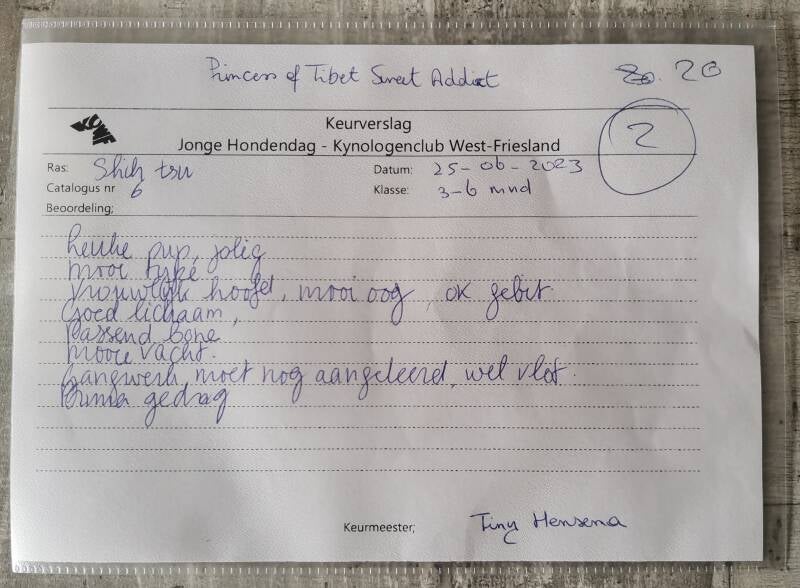 Princess of Tibet Sweet Addict
20. 20
KCWF
Keurverslag
Jonge Hondendag - Kynologenclub West-Friesland
2
Ras: Shih tsu
Datum: 25-06-2023
Catalogus nr 6
Klasse: 3-6 mnd
Beoordeling;
leuke pup, jolig
mooi type
vrouwlijk hoofd, mooi oog, ok gebit.
Goed lichaam,
passend bone
mooie vacht.
Gangwerk, moet nog aangeleerd, wel vlot.
Prima gedrag
Keurmeester; Tiny Hensema